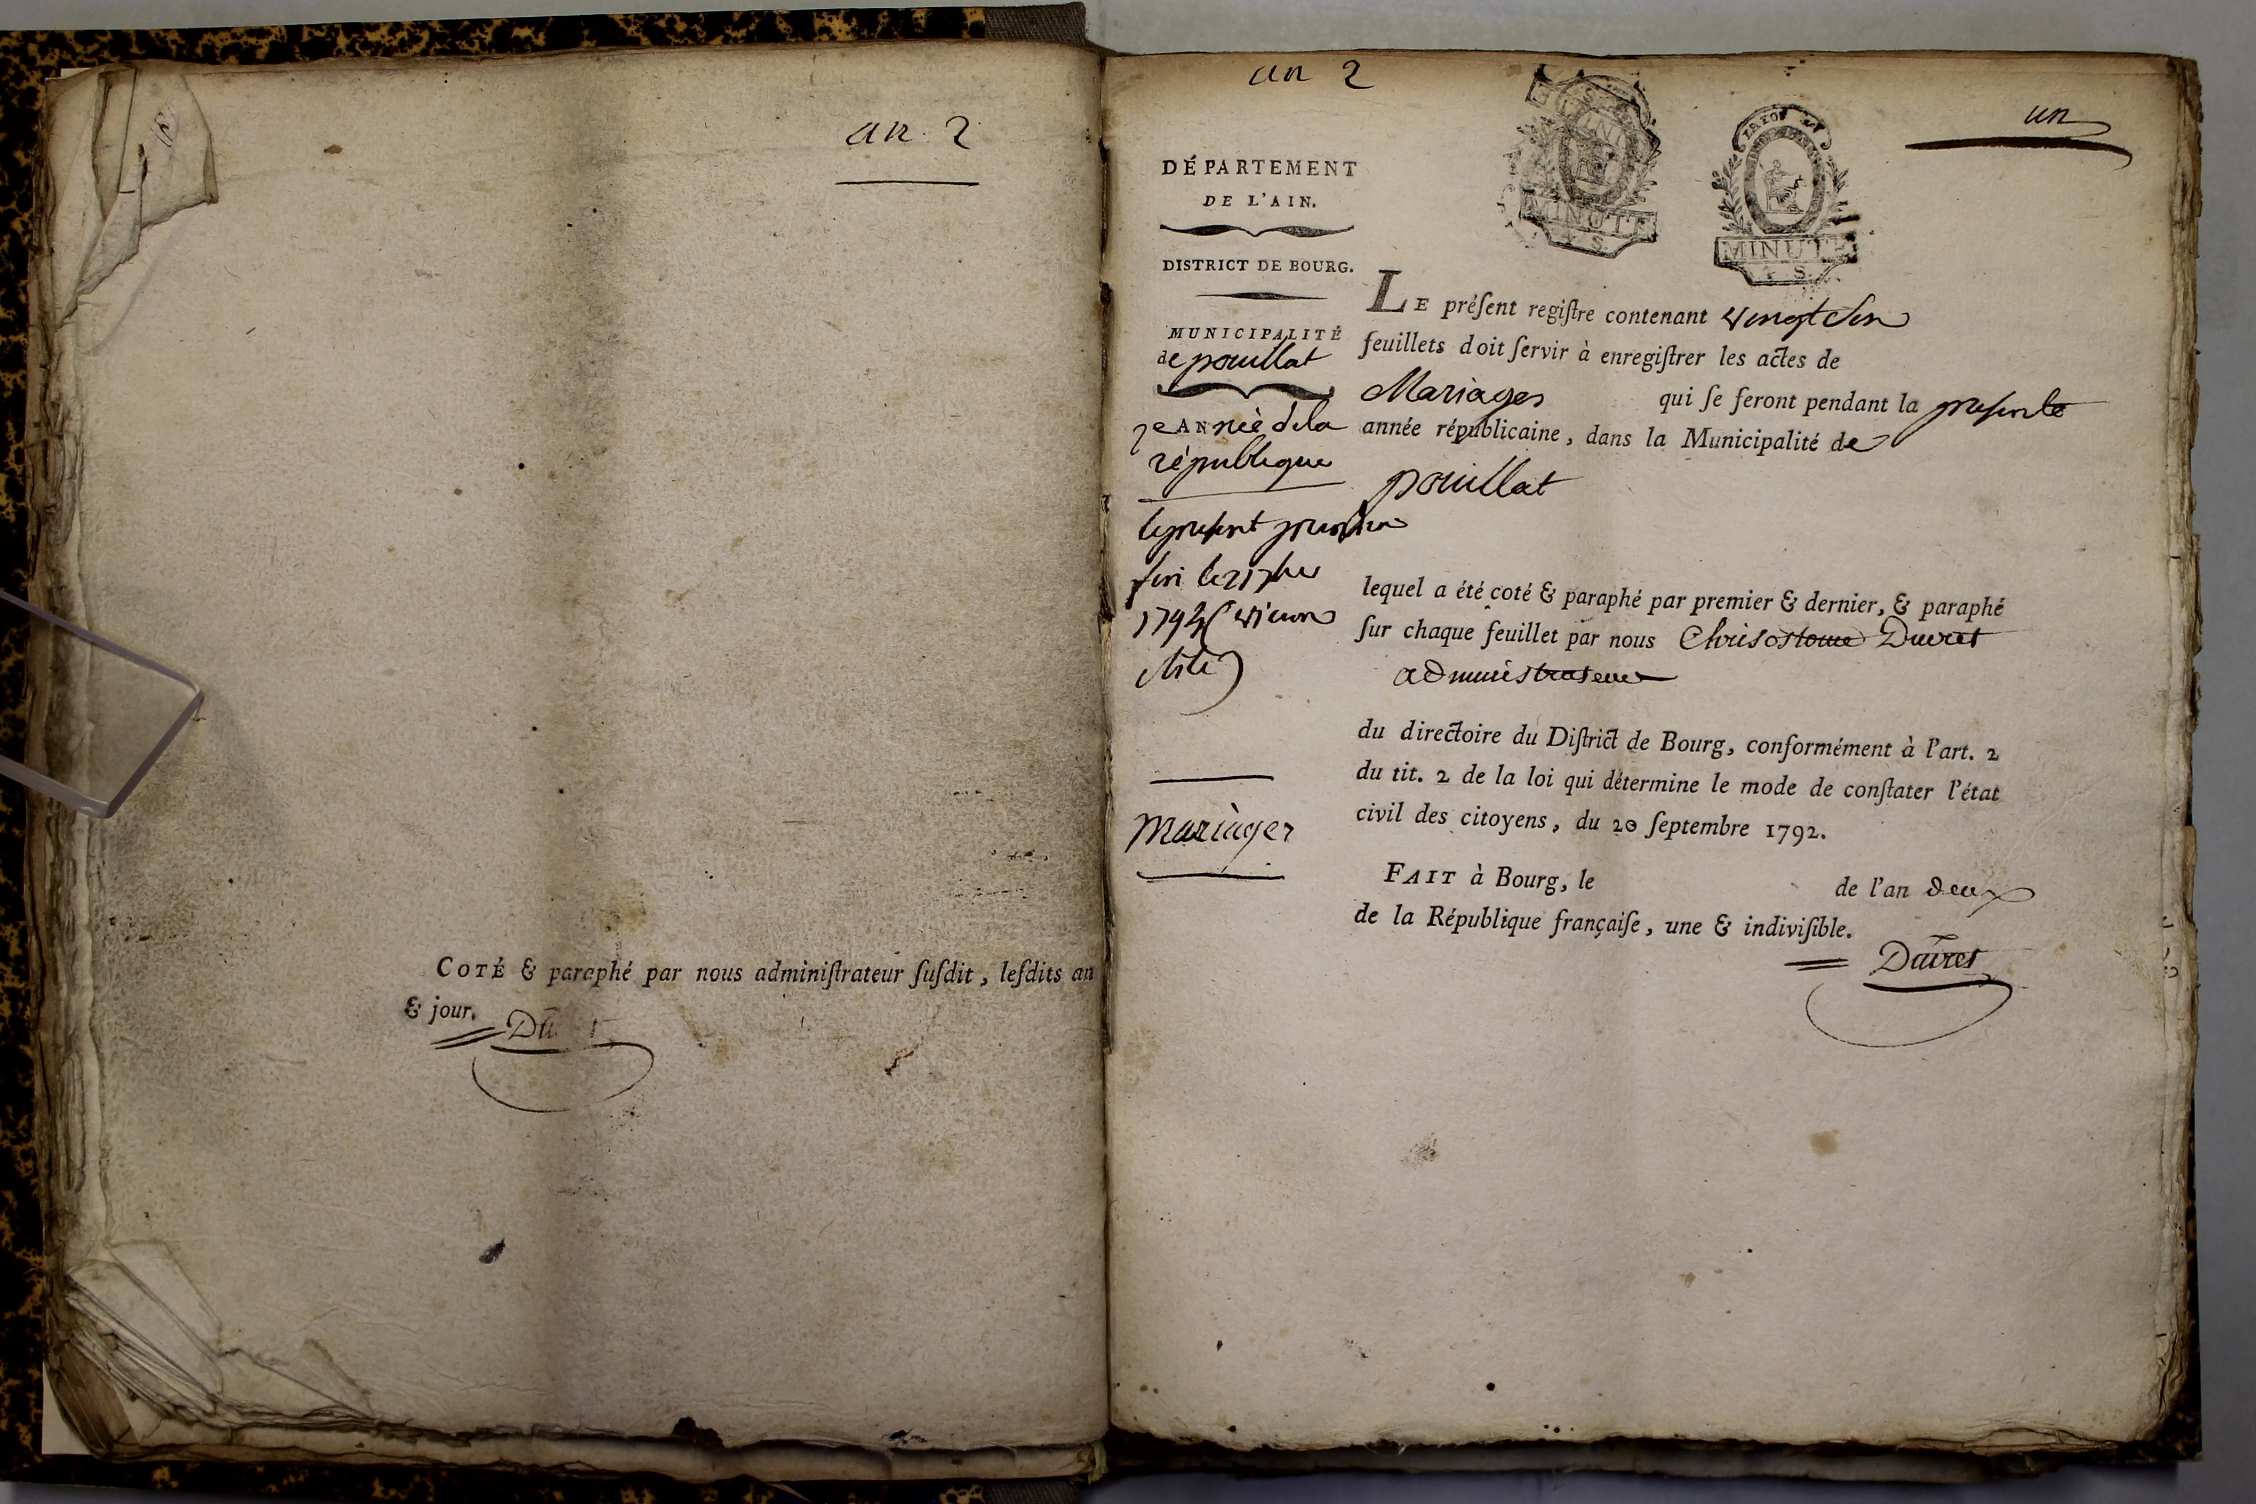 an 2
COTÉ & paraphé par nous adminiſtrateur ſuſdit, leſdits an
& jour.
an 2
un
DÉPARTEMENT
DE L'AIN.
DISTRICT DE BOURG.
MUNICIPALITÉ
de pouillat
2e ANnéé dela
république
1794 (vieux
stile)
mariages
MINUTE
4 S.
MINUTE
4 S.
LE préſent regiſtre contenant vingt
feuillets doit ſervir à enregiſtrer les actes de
Mariages qui ſe feront pendant la presente
année républicaine, dans la Municipalité de
pouillat
lequel a été coté & paraphé par premier & dernier, & paraphé
ſur chaque feuillet par nous Chrisostome Duvret
administrateur
du directoire du Diſtrict de Bourg, conformément à l'art. 2
du tit. 2 de la loi qui détermine le mode de conſtater l'état
civil des citoyens, du 20 ſeptembre 1792.
FAIT à Bourg, le de l'an deux
de la République françaiſe, une & indiviſible.
Duvret